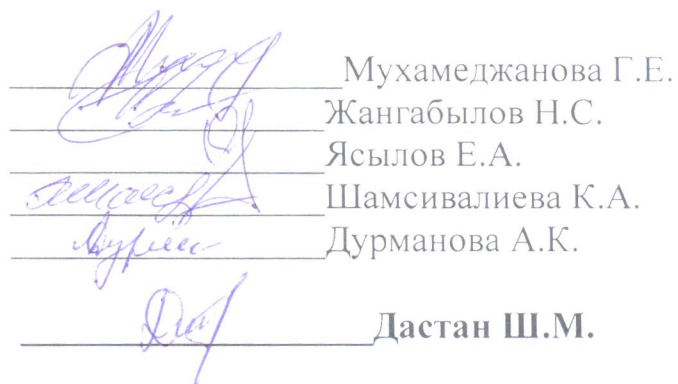 Мухамеджанова Г.Е.
Жангабылов Н.С.
Ясылов Е.А.
Шамсивалиева К.А.
Дурманова А.К.
Дастан Ш.М.